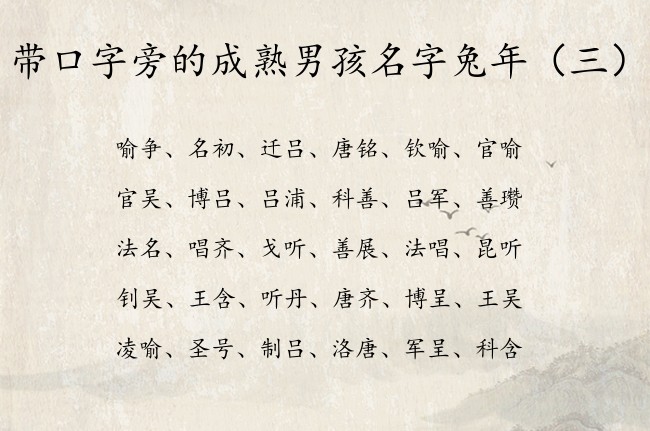 带口字旁的成熟男孩名字兔年（三）
喻争、名初、迁吕、唐铭、钦喻、官喻
官吴、博吕、吕浦、科善、吕军、善瓒
法名、唱齐、戈听、善展、法唱、昆听
钊吴、王含、听丹、唐齐、博呈、王吴
凌喻、圣号、制吕、洛唐、军呈、科含